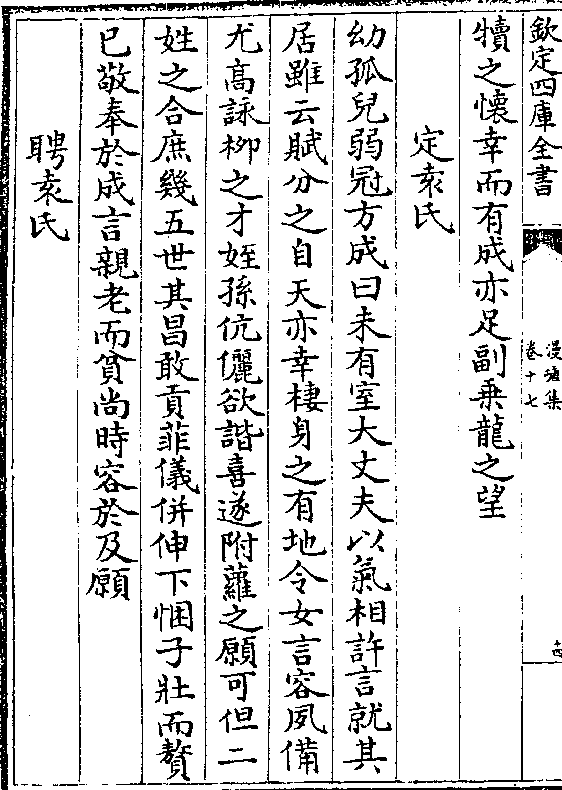 欽定四庫全書
漫塘集
卷十七
十四
犢之懷幸而有成亦足副乗龍之望
定袁氏
幼孤兒弱冠方成曰未有室大丈夫以氣相許言就其
居雖云賦分之自天亦幸棲身之有地令女言容夙備
尤髙詠栁之才姪孫伉儷欲諧喜遂附蘿之願可但二
姓之合庶幾五世其昌敢貢菲儀併伸下悃子壯而贅
已敬奉於成言親老而貧尚時容於及願
聘袁氏